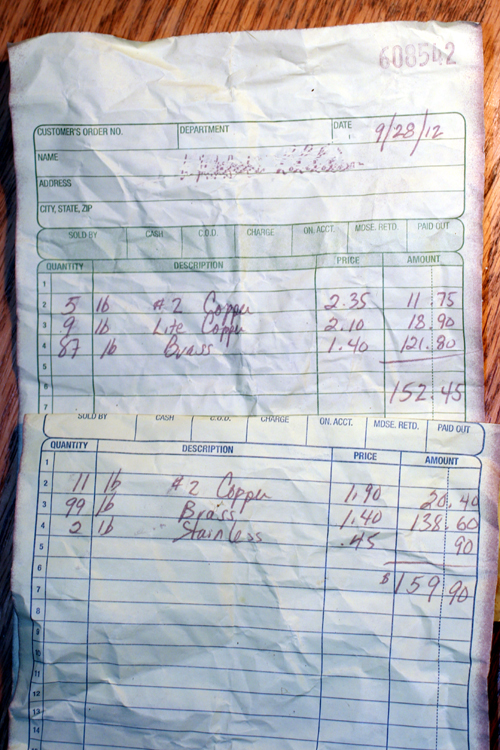 608562
CUSTOMER'S ORDER NO. DEPARTMENT DATE 9/28/12
NAME
ADDRESS
CITY, STATE, ZIP
SOLD BY CASH C.O.D CHARGE ON. ACCT. MDSE. RETD. PAID OUT
QUANTITY DESCRIPTION PRICE AMOUNT
1
2 5 lb #2 Copper 2.35 11.75
3 9 lb Lite Copper 2.10 18.90
4 87 lb Brass 1.40 121.80
5
6 152.45
7
SOLD BY CASH C.O.D. CHARGE ON. ACCT. MDSE. RETD. PAID OUT
QUANTITY DESCRIPTION PRICE AMOUNT
1
2 11 lb #2 Copper 1.90 20.40
3 99 lb Brass 1.40 138 60
4 2 lb Stainless .45 90
5
6
7 $159 90
8
9
10
11
12
13
14